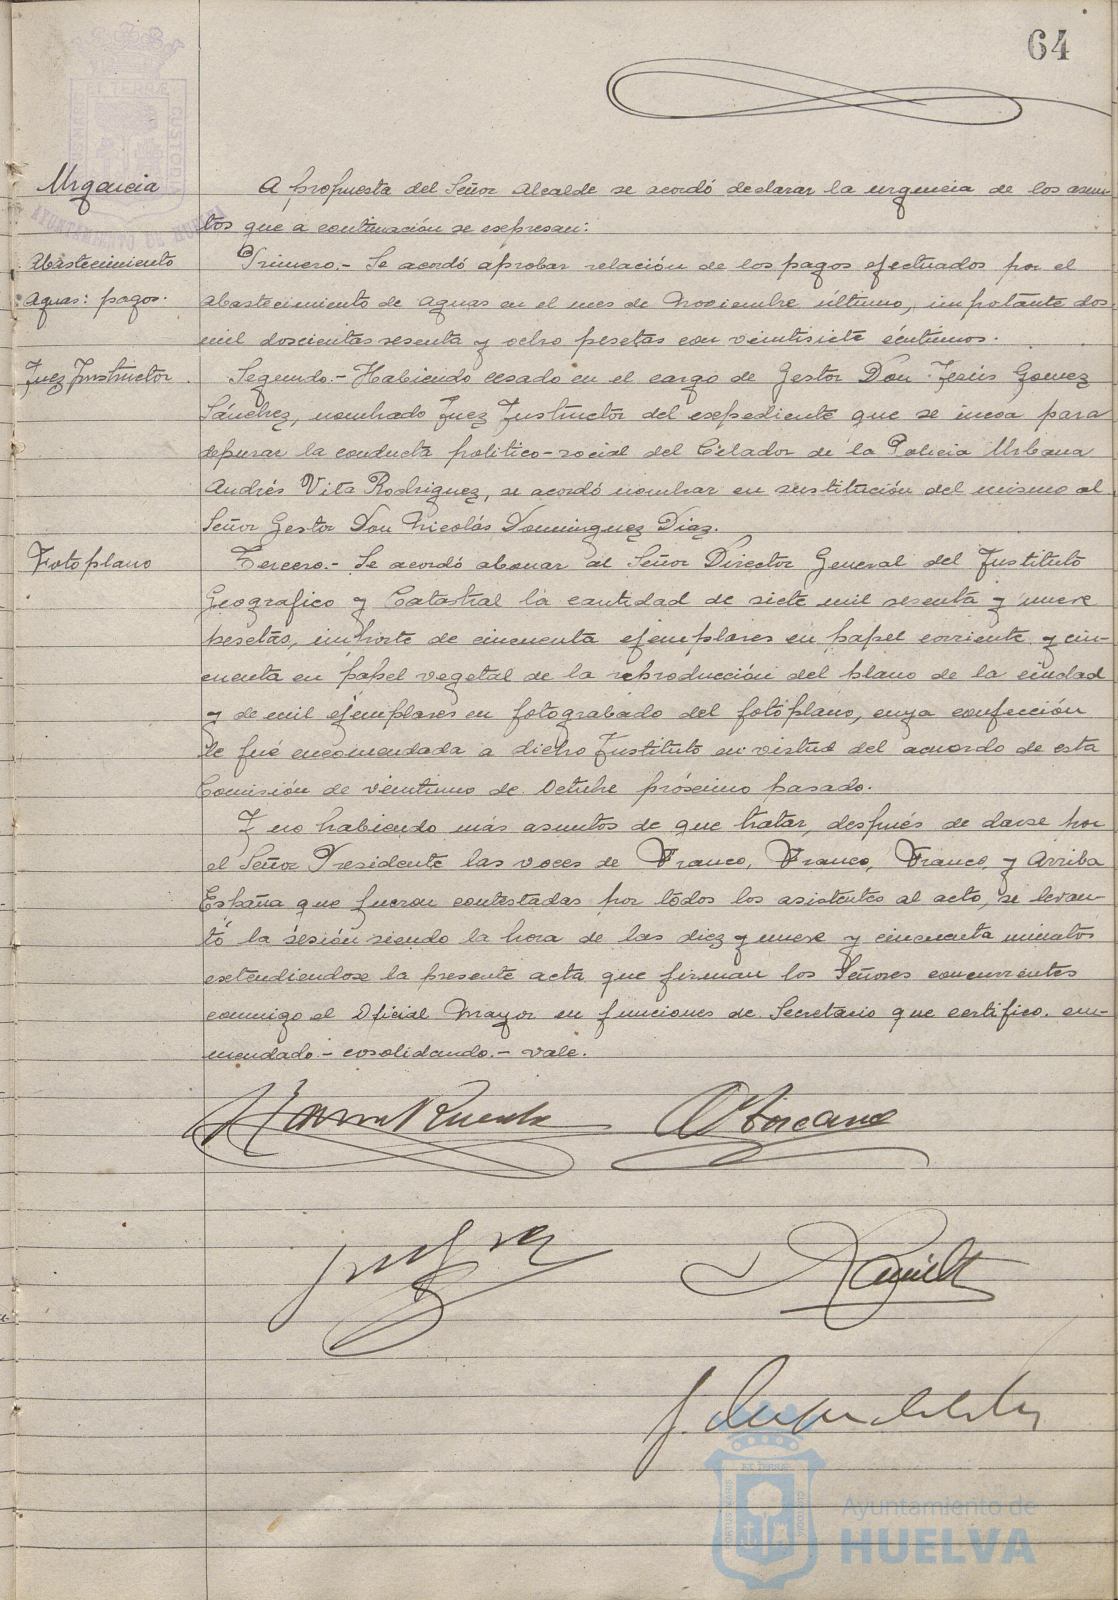 64
Urgencia
A propuesta del Señor Alcalde se acordó declarar la urgencia de los asun-
tos que a continuación se expresan:
Abastecimiento
Aguas: pagos.
Primero.- Se acordó aprobar relación de los pagos efectuados por el
abastecimiento de aguas en el mes de Noviembre último, importante dos
mil doscientas sesenta y ocho pesetas con veintisiete céntimos.
Juez Instructor
Segundo.- Habiendo cesado en el cargo de Gestor Don Jesús Gomez
Sánchez, nombrado Juez Instructor del expediente que se incoa para
depurar la conducta politico-social del Celador de la Policia Urbana
Andrés Vita Rodriguez, se acordó nombrar en sustitución del mismo al
Señor Gestor Don Nicolás Dominguez Diaz.
Fotoplano
Tercero.- Se acordó abonar al Señor Director General del Instituto
Geografico y Catastral la cantidad de siete mil sesenta y nueve
pesetas, importe de cincuenta ejemplares en papel corriente y cin-
cuenta en papel vegetal de la reproducción del plano de la ciudad
y de mil ejemplares en fotograbado del fotoplano, cuya confección
le fué encomendada a dicho Instituto en virtud del acuerdo de esta
Comisión de veintiuno de Octubre próximo pasado.
Y no habiendo más asuntos de que tratar, después de darse por
el Señor Presidente las voces de Franco, Franco, Franco, y Arriba
España que fueron contestadas por todos los asistentes al acto, se levan-
tó la sesión siendo la hora de las diez y nueve y cincuenta minutos
extendiendose la presente acta que firman los Señores concurrentes
conmigo el Oficial Mayor en funciones de Secretario que certifico. en-
mendado.- cosolidando.- vale.
ET TERRÆ
CUSTODIA
AYUNTAMIENTO DE HUELVA
PORTUS MARIS
ET TERRÆ
CUSTODIA
Ayuntamiento de
HUELVA